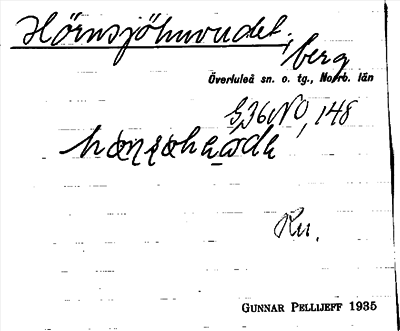 Hörnsjöhuvudet, berg
Överluleå sn. o. tg., Norrb. län
GJ6NO, 148
Ru.
GUNNAR PELLIJEFF 1935